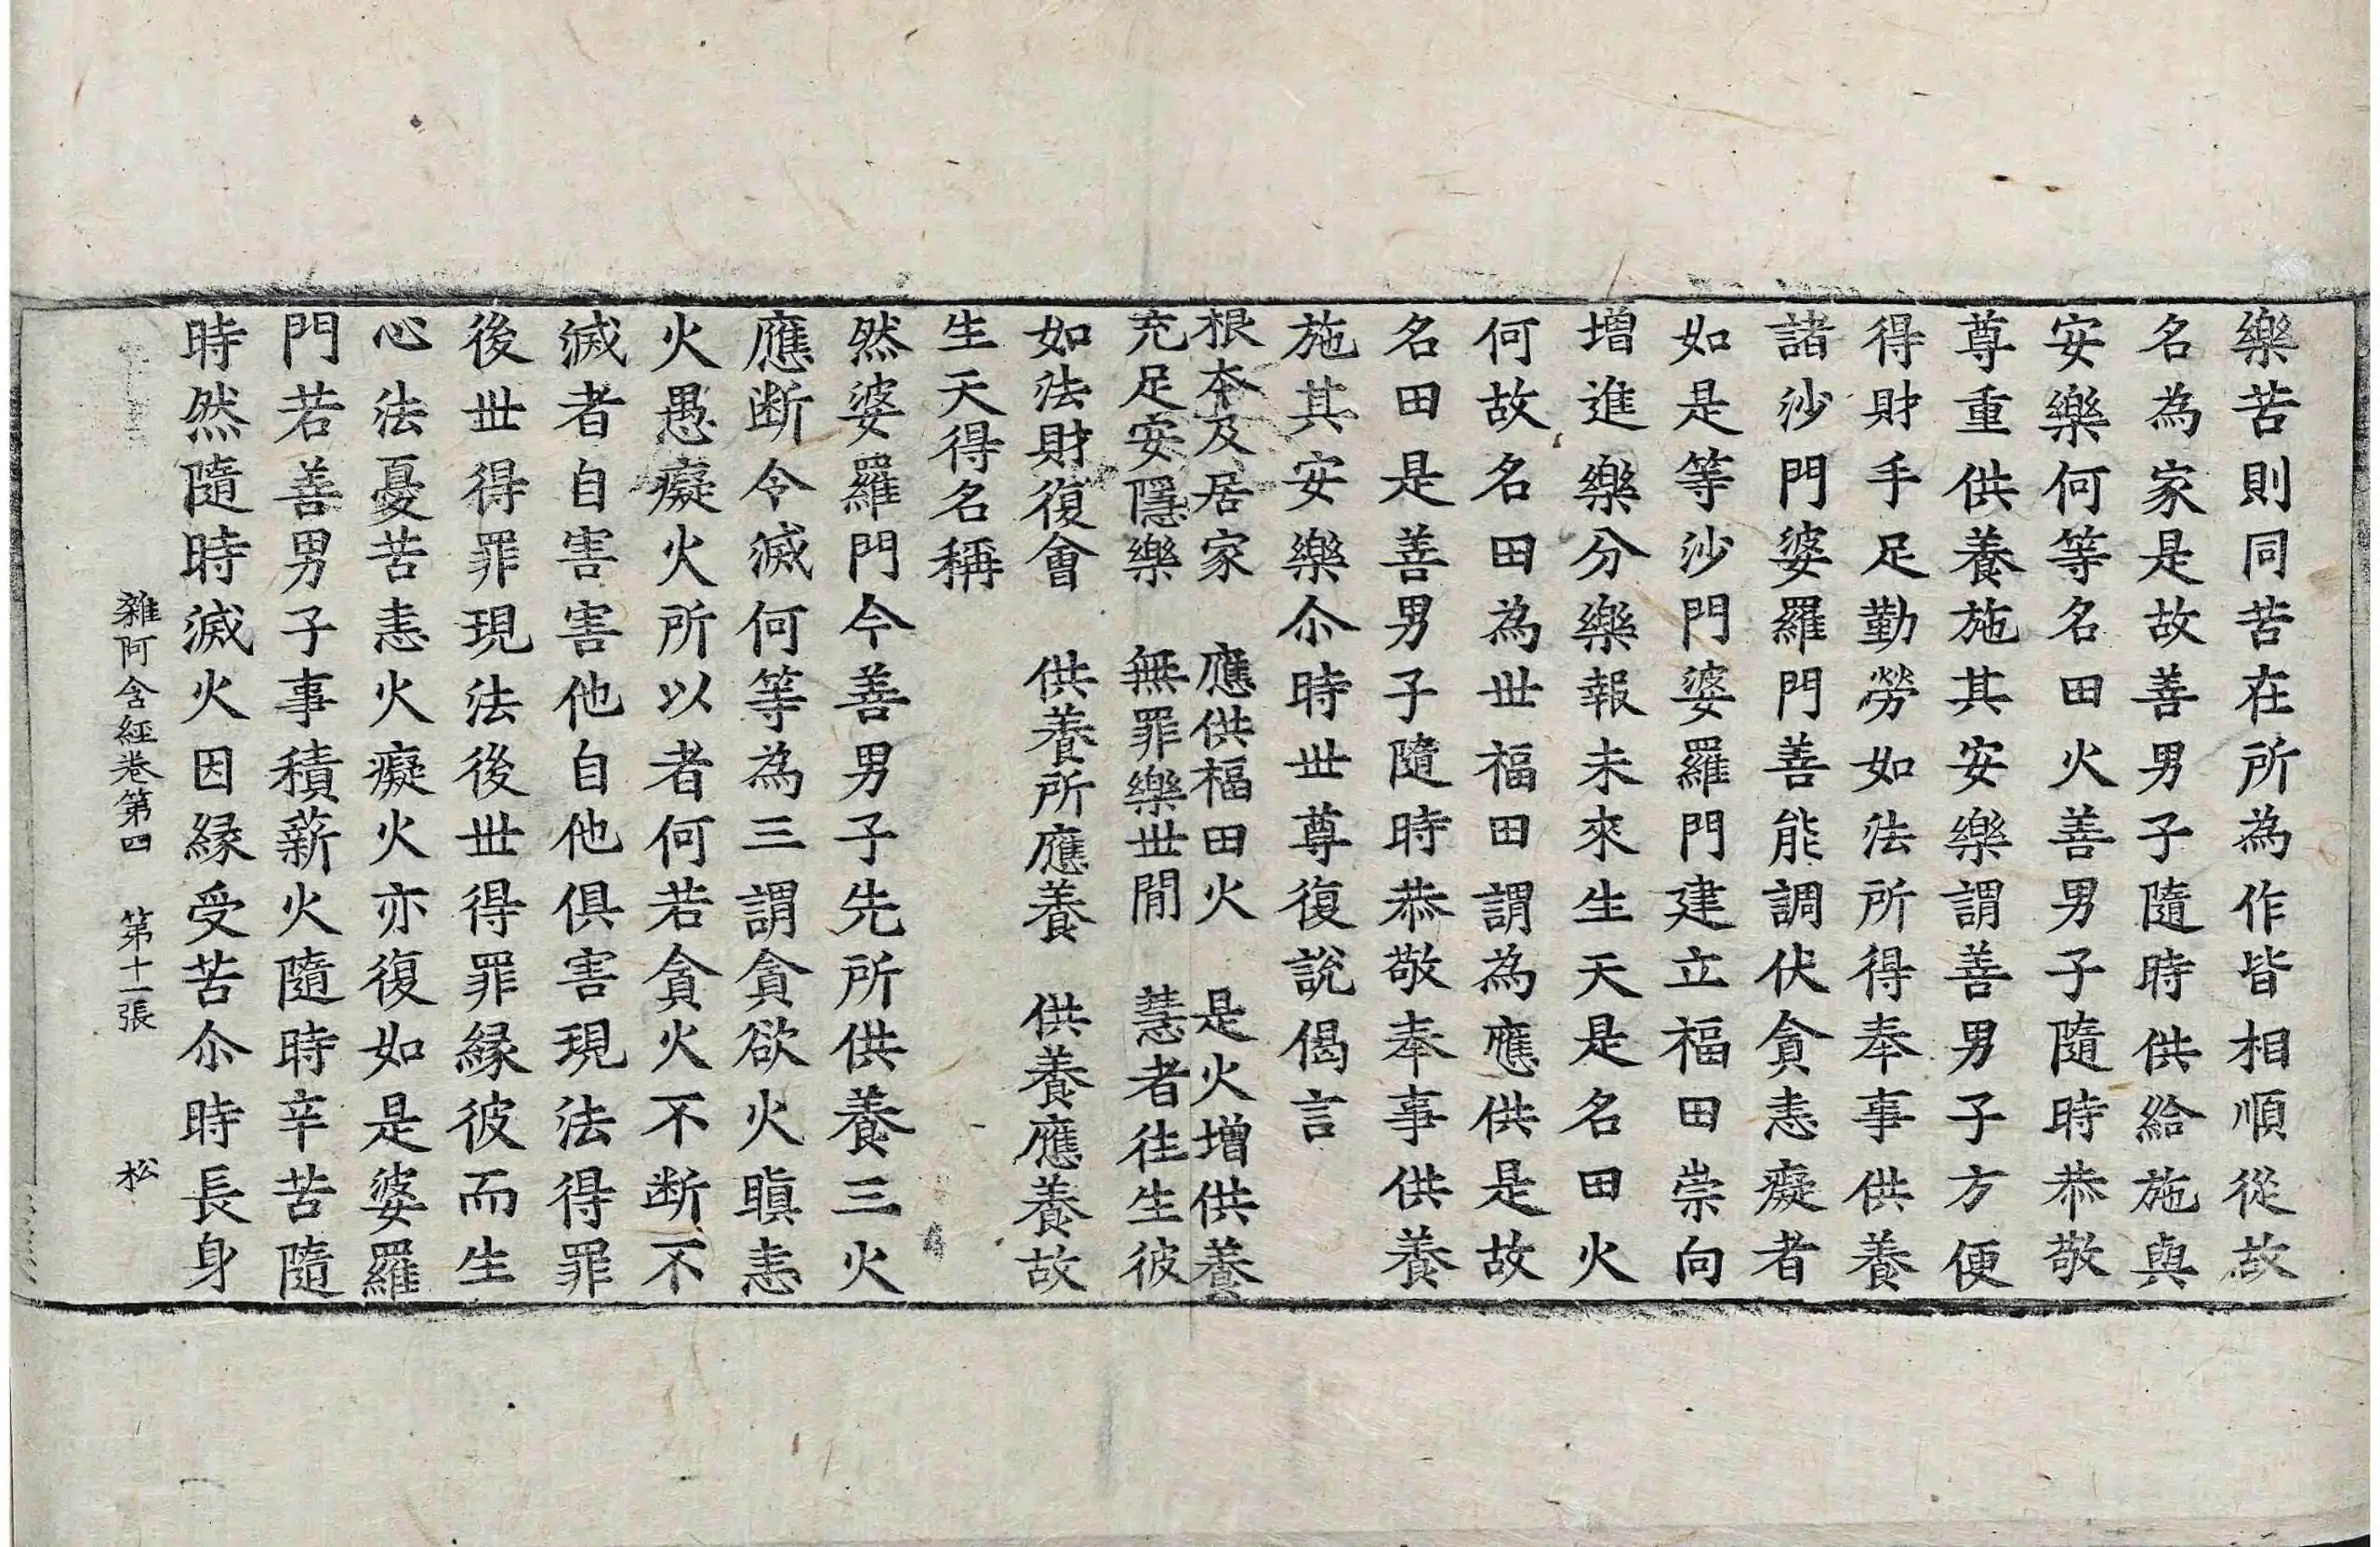 樂苦則同苦在所為作皆相順從故
名為家是故善男子隨時供給施與
安樂何等名田火善男子隨時恭敬
尊重供養施其安樂謂善男子方便
得財手足勤勞如法所得奉事供養
諸沙門婆羅門善能調伏貪恚癡者
如是等沙門婆羅門建立福田崇向
增進樂分樂報未來生天是名田火
何故名田為世福田謂為應供是故
名田是善男子隨時恭敬奉事供養
施其安樂尒時世尊復說偈言
根本及居家　應供福田火　是火增供養
充足安隱樂　無罪樂世閒　慧者往生彼
如法財復會　供養所應養　供養應養故
生天得名稱
然婆羅門今善男子先所供養三火
應断令滅何等為三謂貪欲火瞋恚
火愚癡火所以者何若貪火不断不
滅者自害害他自他俱害現法得罪
後世得罪現法後世得罪緣彼而生
心法憂苦恚火癡火亦復如是婆羅
門若善男子事積薪火隨時辛苦隨
時然隨時滅火因緣受苦尒時長身
雜阿含経卷第四　第十一張　松